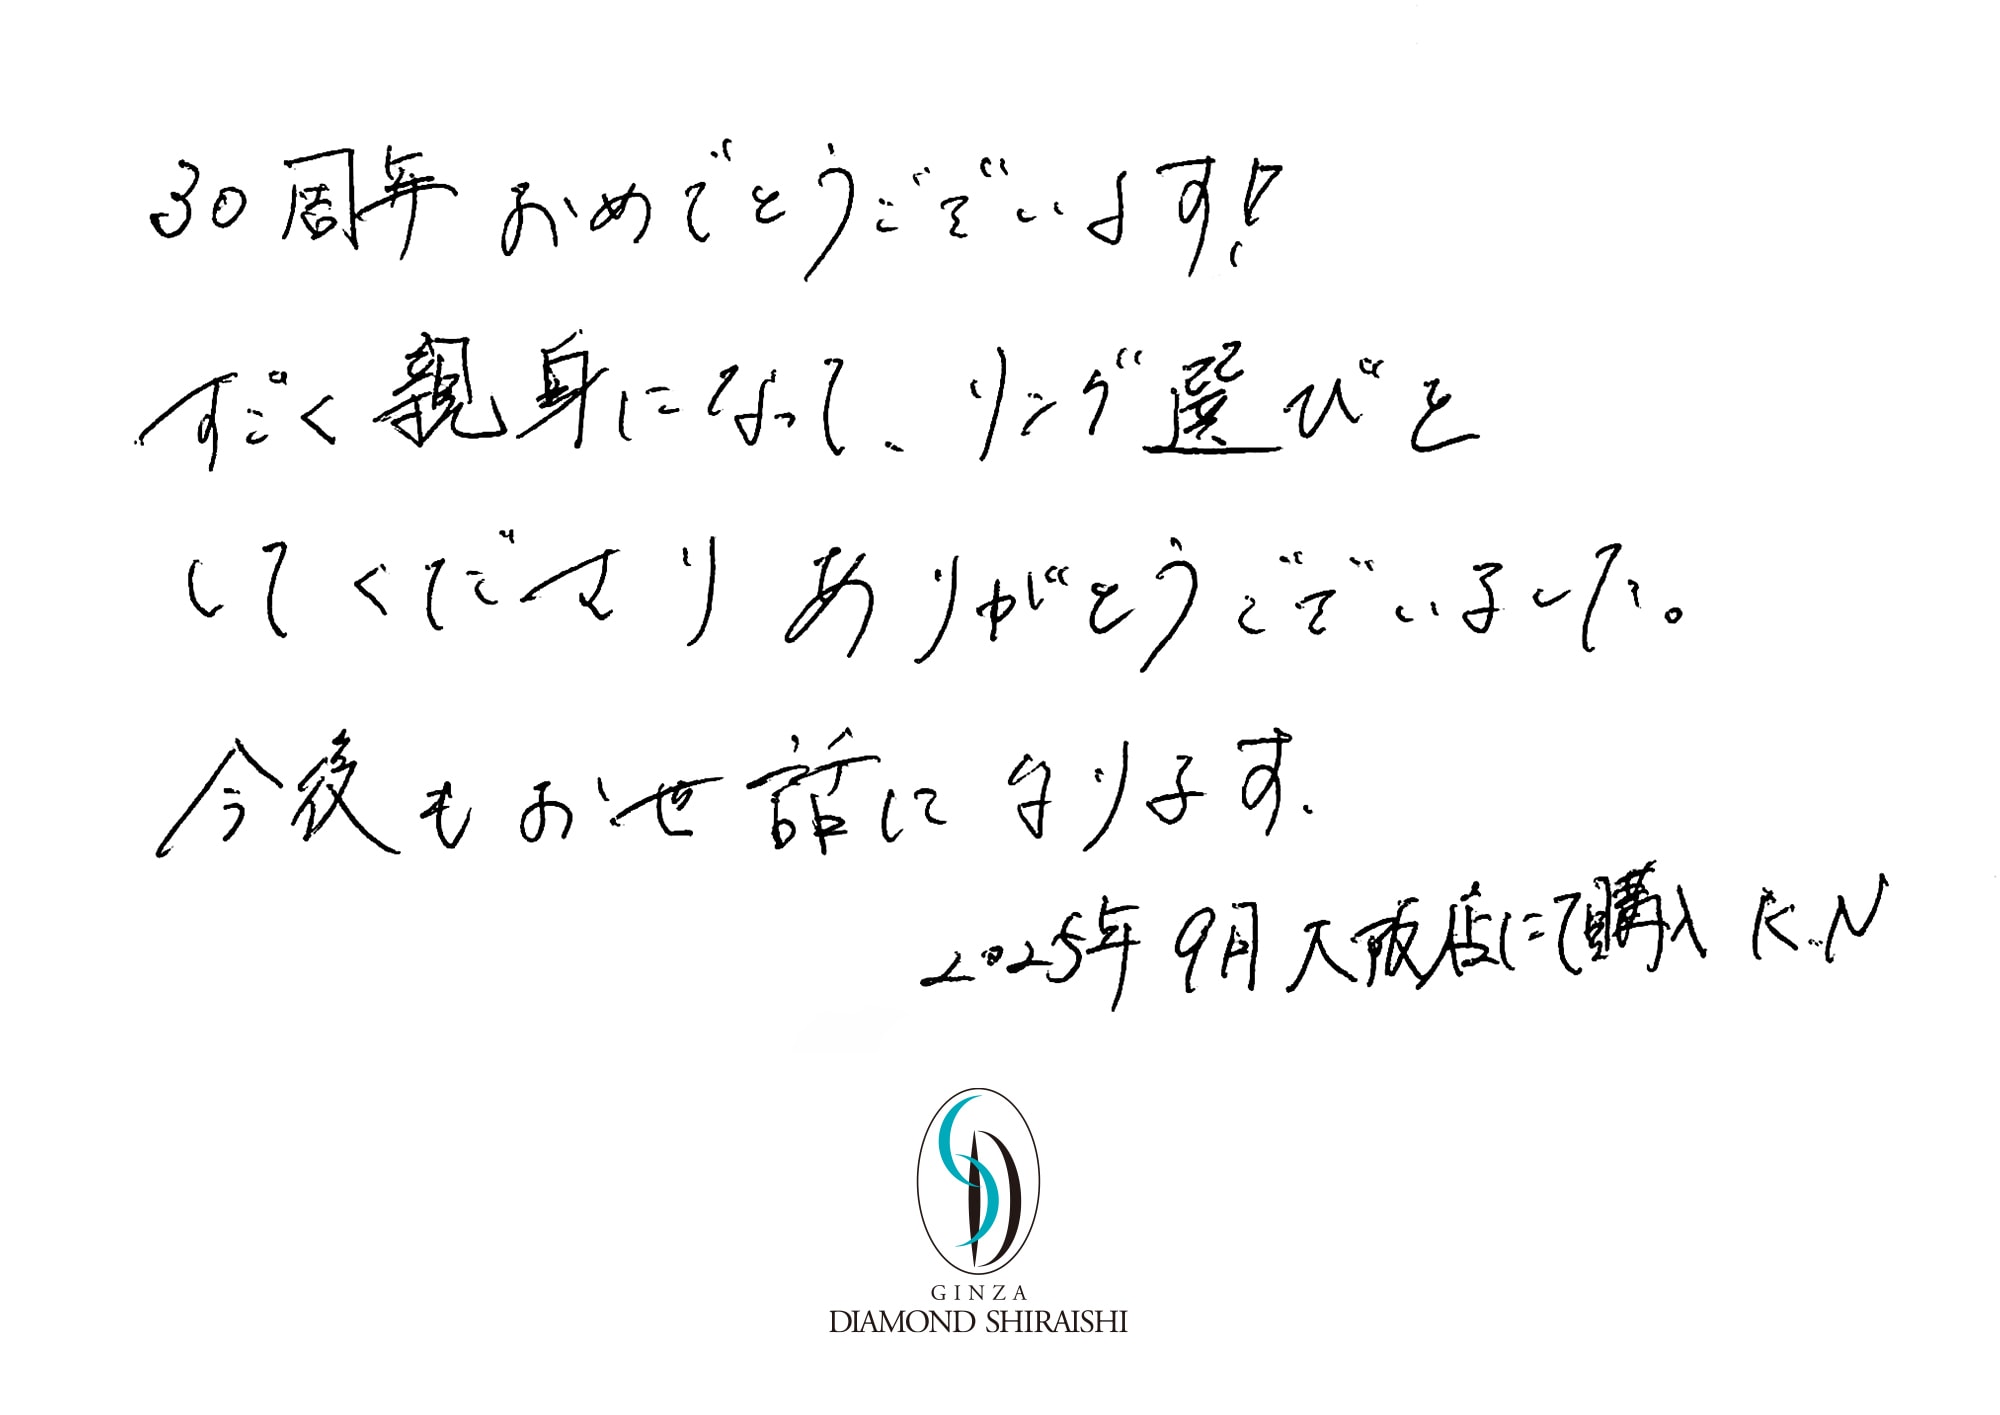 30周年 おめでとうございます!
すごく親身になって、リング選びを
してくださり ありがとうございました。
今後もお世話になります.
2025年 9月 大阪店にて購入 K.N
GINZA
DIAMOND SHIRAISHI